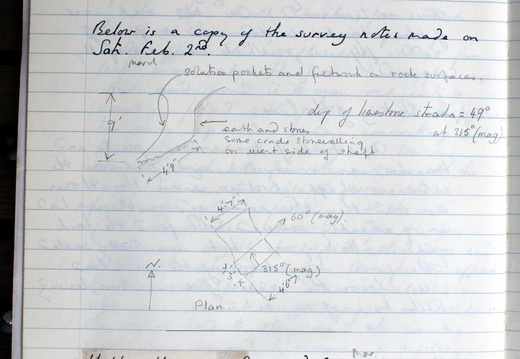 Below is a copy of the survey notes made on
Sat. Feb. 2nd.
solution pockets and fretwork on rock surfaces.
dip of limestone strata = 49°
at 315° (mag)
9'
earth and stones
some crude stonewalling
on west side of shaft
4'9"
4'7"
60° (mag).
N.
3'
315° (mag)
4'6"
Plan.